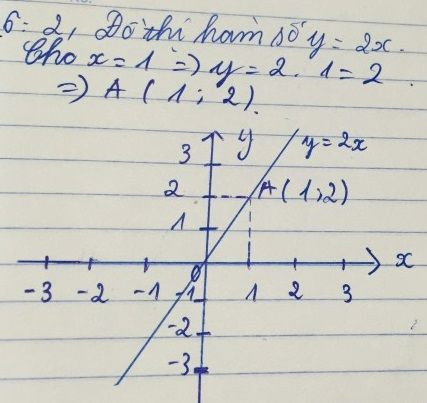 6: 2, Đồ thị hàm số y = 2x.
Cho x = 1 => y = 2. 1 = 2
=> A ( 1 ; 2 ).
y
y = 2x
3
2
A ( 1 ; 2 )
1
O
x
-3 -2 -1 -1 1 2 3
-2
-3